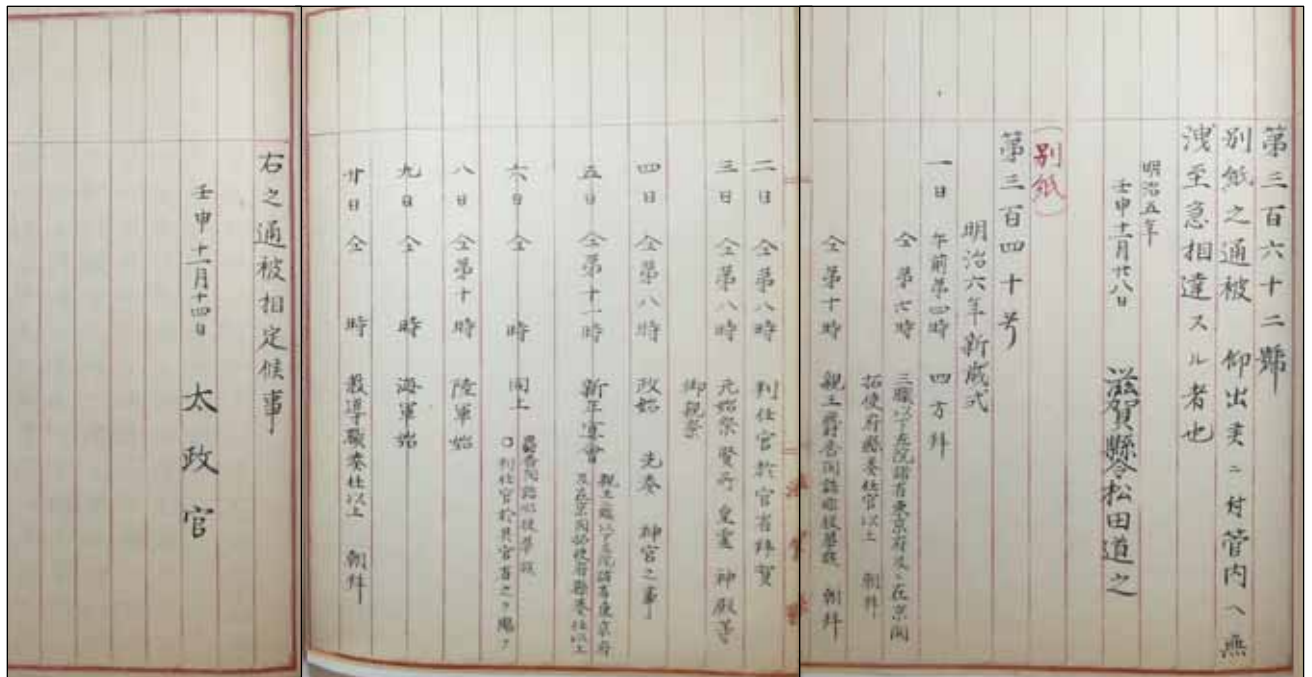 第三百六十二號
別紙之通被　仰出候ニ付管内ヘ無
洩至急相達スル者也
明治五年
壬申十一月廿八日　滋賀縣令松田道之
（別紙）
第三百四十号
明治六年新歳式
一日　午前第四時　四方拜
仝　第七時　三職以下左院諸省東京府及ヒ在京開
拓使府縣奏任官以上　朝拜
仝第十時　親王爵香間詰非役華族　朝拜
二日　仝第八時　判任官於官省拜賀
三日　仝第八時　元始祭賢所皇霊神殿等
御親祭
四日　仝第八時　政始　先奏　神宮之事
五日　仝第十一時　新年宴會　親王職以下左院諸省東京府
及在京開拓使府縣奏任以上
六日　仝　時　同上　爵香間詰非役華族
判任官於其官省之ヲ賜フ
八日　仝第十時　陸軍始
九日　仝　時　海軍始
廿日　仝　時　教導職奏任以上　朝拜
右之通被相定候事
壬申十一月十四日　太政官
滋賀縣